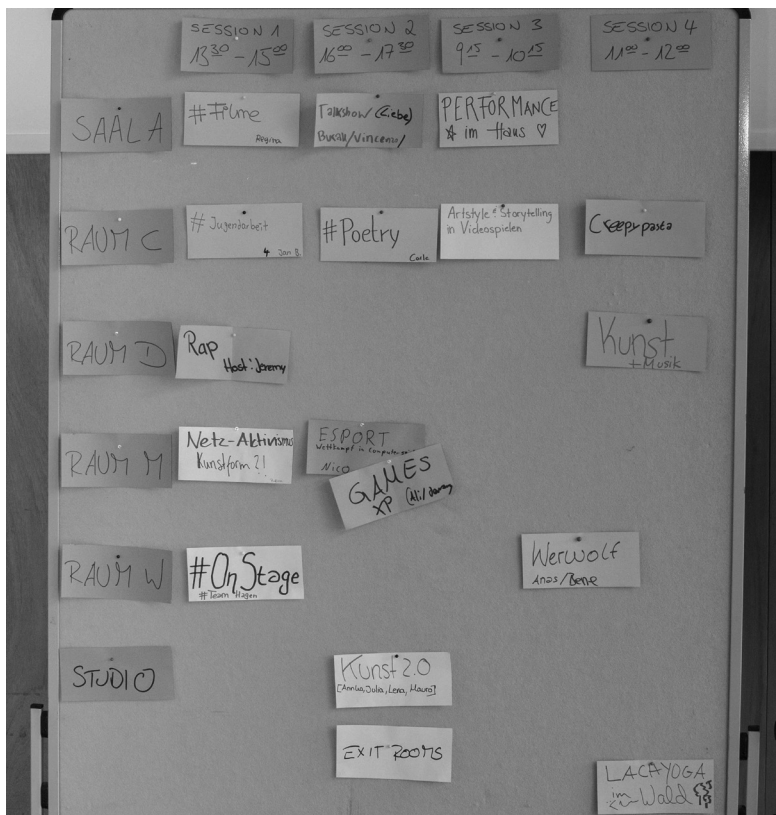 SESSION 1
13 30 - 15 00
SESSION 2
16 00 - 17 30
SESSION 3
9 15 - 10 15
SESSION 4
11 00 - 12 00
SAAL A
#Filme
Regina
Talkshow (Liebe)
Burak/Vincenzo/
PERFORMANCE
im Haus ♡
RAUM C
# Jugendarbeit
Jan B.
#Poetry
Carla
Artstyle & Storytelling
in Videospielen
Creepypasta
RAUM D
Rap
Host: Jeremy
Kunst
+ Musik
RAUM M
Netz-Aktivismus
Kunstform?!
ESPORT
Wettkampf in
Nico
GAMES
XP (Ali/
RAUM W
#OnStage
#Team Hagen
Werwolf
Anas/Bene
STUDIO
Kunst 2.0
[Annika, Julia, Lena, Mauro]
EXIT ROOMS
LACHYOGA
im Wald